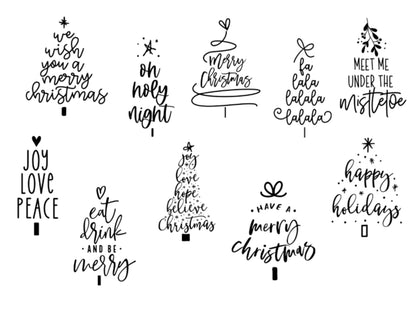 we
wish
you a
merry
christmas
oh
holy
night
merry
Christmas
fa
lala
lalala
lalala
MEET ME
UNDER THE
mistletoe
JOY
LOVE
PEACE
eat
drink
·AND BE·
merry
joy
love
hope
believe
Christmas
·HAVE A·
merry
christmas
happy
holidays